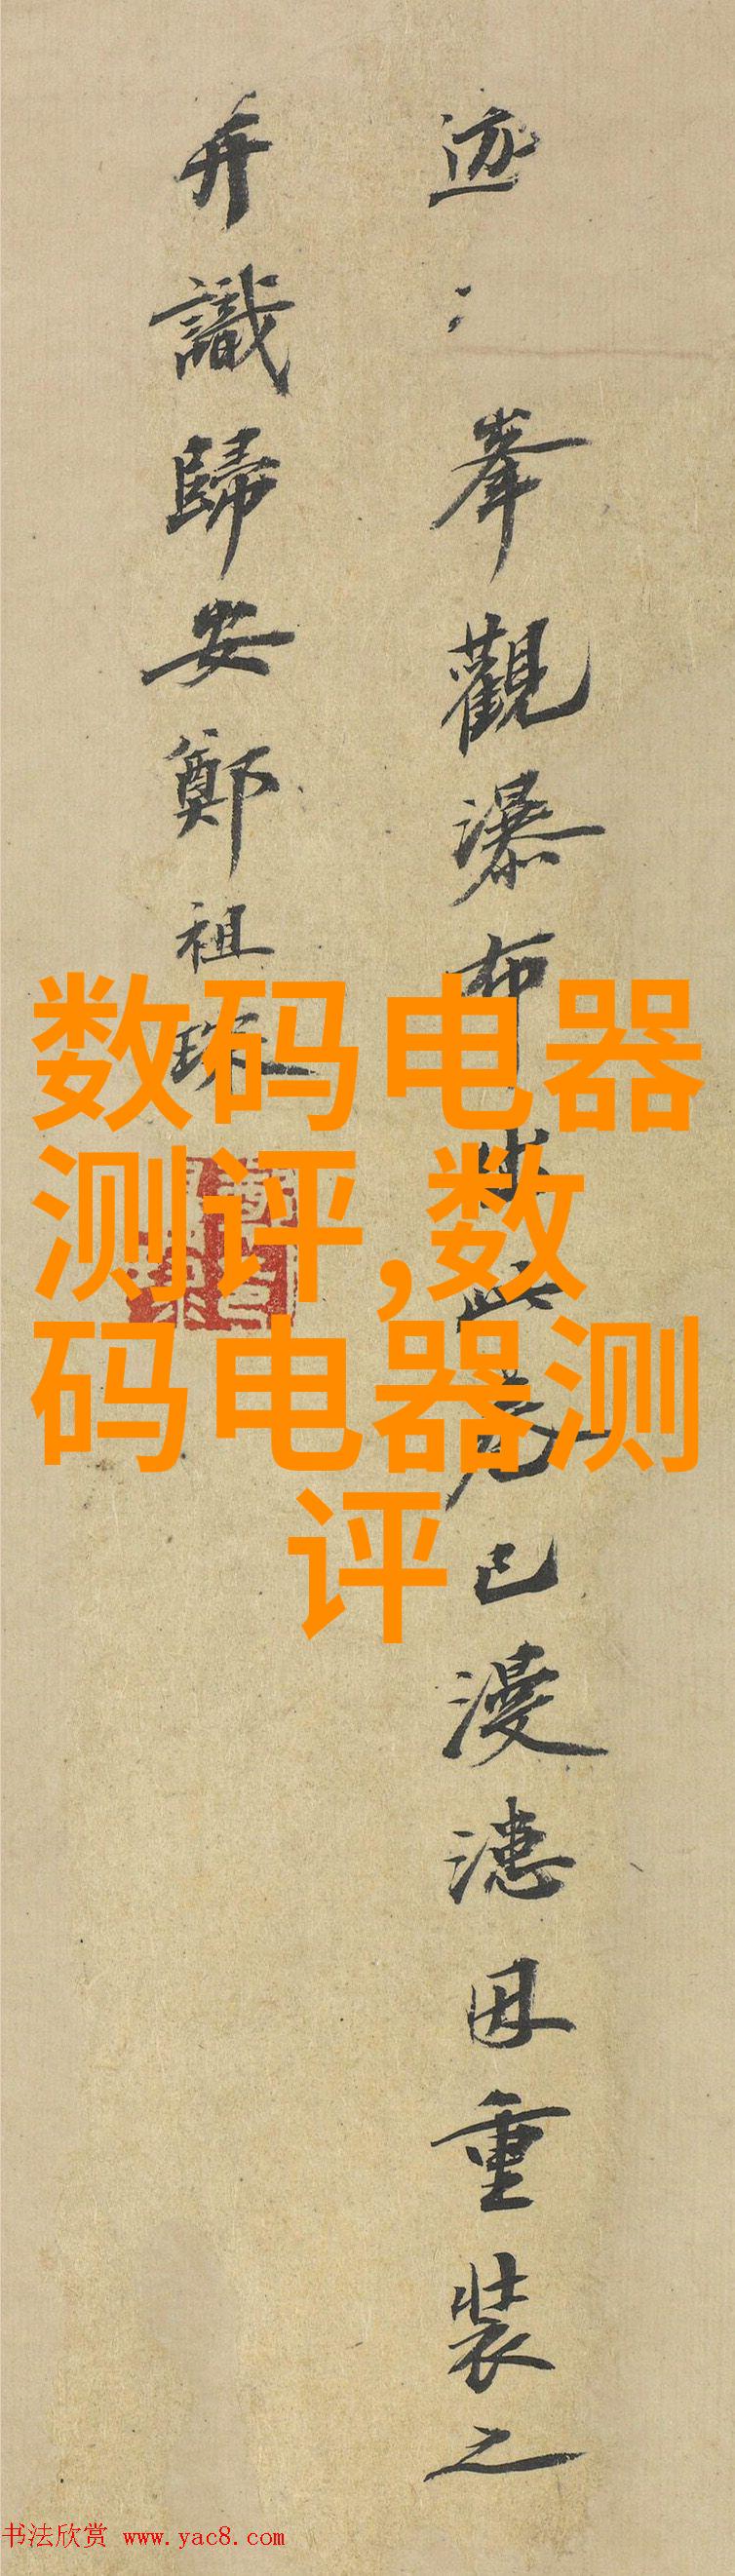 迹峯觀瀑布此卷已漫漶因重裝之
并識歸安鄭祖琛
数码电器
测评,数
码电器测
评
书法欣赏 www.yac8.com